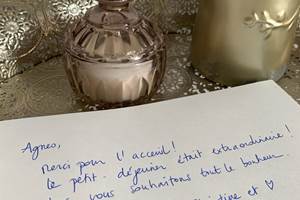 Agnes,
Merci pour l'acceuil!
Le petit-déjeuner était extraordinaire!
vous souhaitons tout le bonheur.
et ♡